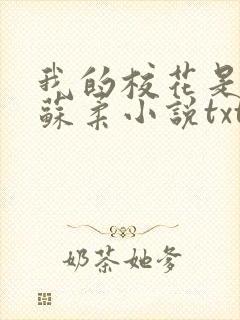 我的校花是
蘇柔小説txt
奶茶她爹